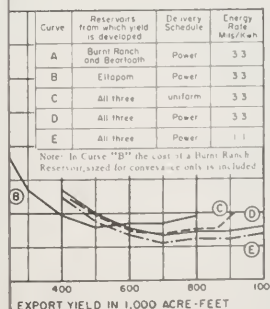 Curve Reservoirs from which yield is developed Delivery Schedule Energy Rate Mills/Kwh
A Burnt Ranch and Beartooth Power 3.3
B Eltapom Power 3.3
C All three uniform 3.3
D All three Power 3.3
E All three Power 1.1
Note: In Curve "B" the cost of a Burnt Ranch
Reservoir, sized for conveyance only is included
B
C
D
E
400 600 800 100
EXPORT YIELD IN 1,000 ACRE-FEET